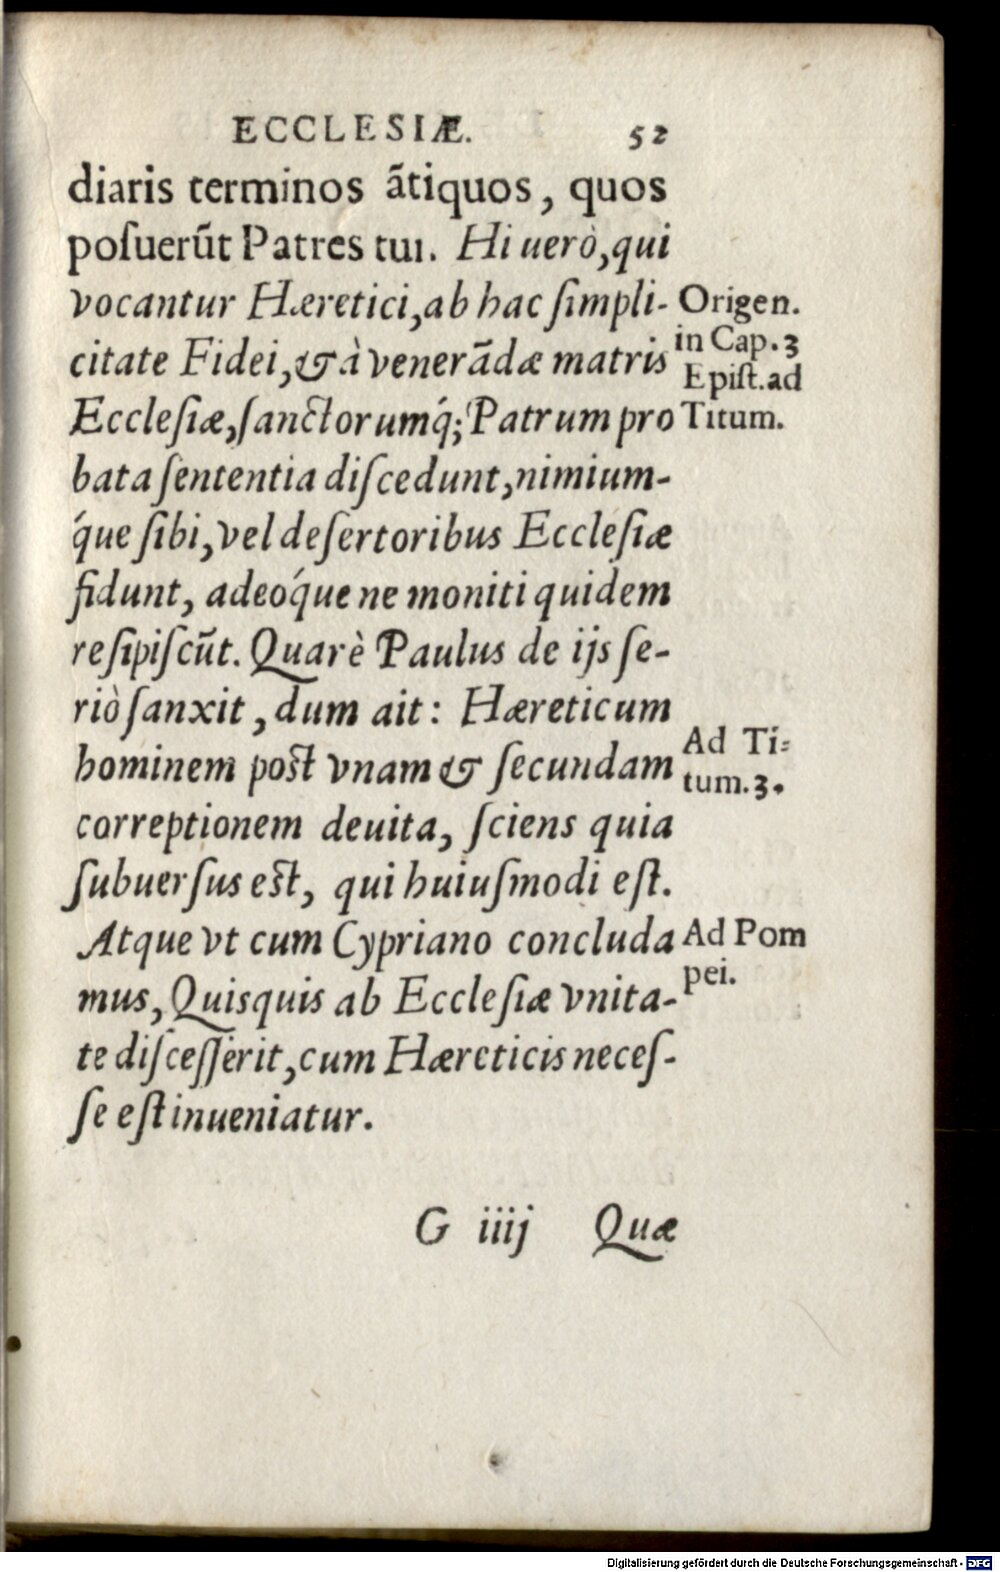 ECCLESIÆ. 52
diaris terminos ãtiquos, quos
posuerũt Patres tui. Hi uerò, qui
vocantur Hæretici, ab hac simpli-
citate Fidei, & à venerãdæ matris
Ecclesiæ, sanctorumq́; Patrum pro
bata sententia discedunt, nimium-
q́ue sibi, vel desertoribus Ecclesiæ
fidunt, adeoq́ue ne moniti quidem
resipiscũt. Quarè Paulus de ijs se-
riò sanxit, dum ait: Hæreticum
hominem post vnam & secundam
correptionem deuita, sciens quia
subuersus est, qui huiusmodi est.
Atque vt cum Cypriano concluda
mus, Quisquis ab Ecclesiæ vnita-
te discesserit, cum Hæreticis neces-
se est inueniatur.
Origen.
in Cap. 3
Epist. ad
Titum.
Ad Ti-
tum. 3.
Ad Pom
pei.
G iiij Quæ
Digitalisierung gefördert durch die Deutsche Forschungsgemeinschaft - DFG